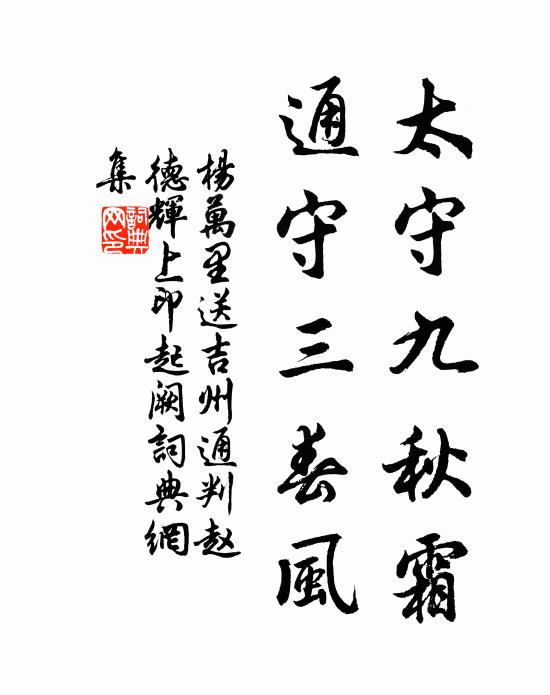 太守九秋霜
通守三春風
楊萬里送吉州通判赵
德輝上印起阙詞典網
集
詞典
网印